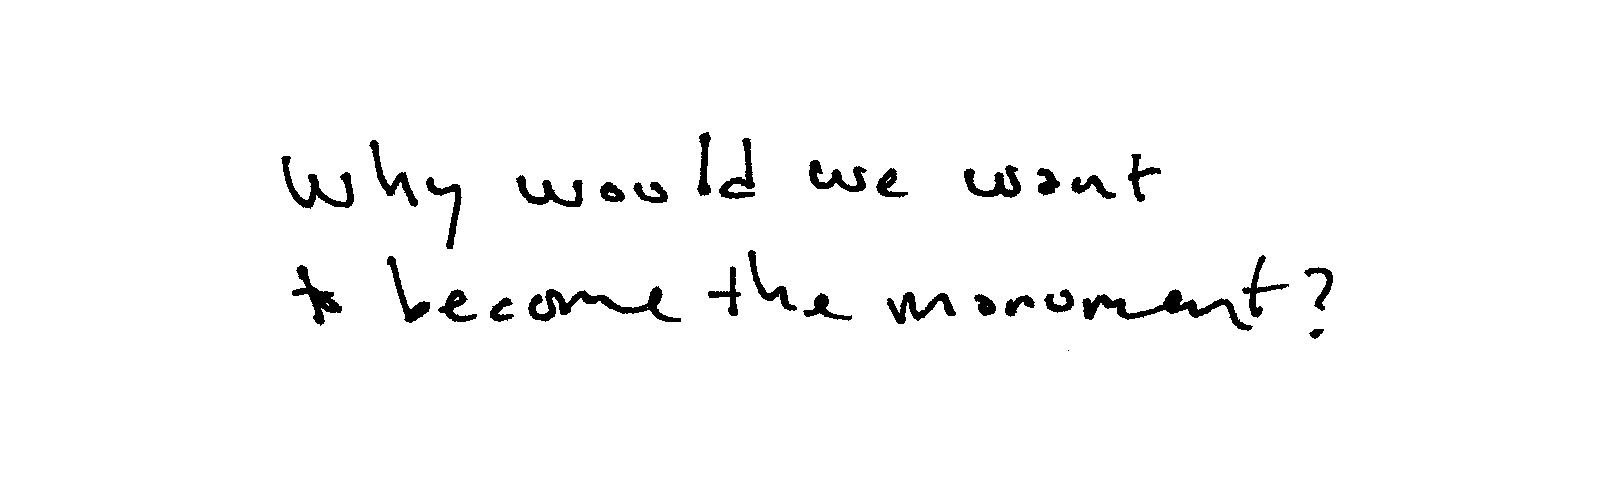 Why would we want
to become the monument?